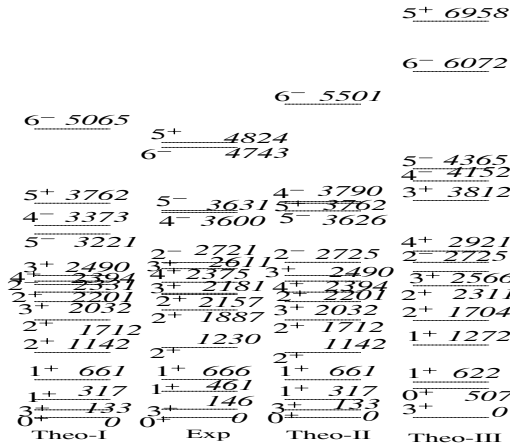 6⁻ 5065
5⁺ 3762
4⁻ 3373
5⁻ 3221
3⁺ 2490
4⁺ 2394
2⁻ 2331
2⁺ 2201
3⁺ 2032
2⁺ 1712
2⁺ 1142
1⁺ 661
1⁺ 317
3⁺ 133
0⁺ 0
Theo-I
5⁺ 4824
6⁻ 4743
5⁻ 3631
4⁻ 3600
2⁻ 2721
3⁺ 2611
2375
3⁺ 2181
2⁺ 2157
2⁺ 1887
2⁺ 1230
1⁺ 666
1⁺ 461
146
3⁺ 0
Exp
6⁻ 5501
4⁻ 3790
5⁺ 3762
5⁻ 3626
2⁻ 2725
3⁺ 2490
4⁺ 2394
2⁺ 2201
3⁺ 2032
2⁺ 1712
2⁺ 1142
1⁺ 661
1⁺ 317
3⁺ 133
0
Theo-II
5⁺ 6958
6⁻ 6072
5⁻ 4365
4⁻ 4152
3⁺ 3812
4⁺ 2921
2⁻ 2725
3⁺ 2566
2⁺ 2311
2⁺ 1704
1⁺ 1272
1⁺ 622
0⁺ 507
3⁺ 0
Theo-III